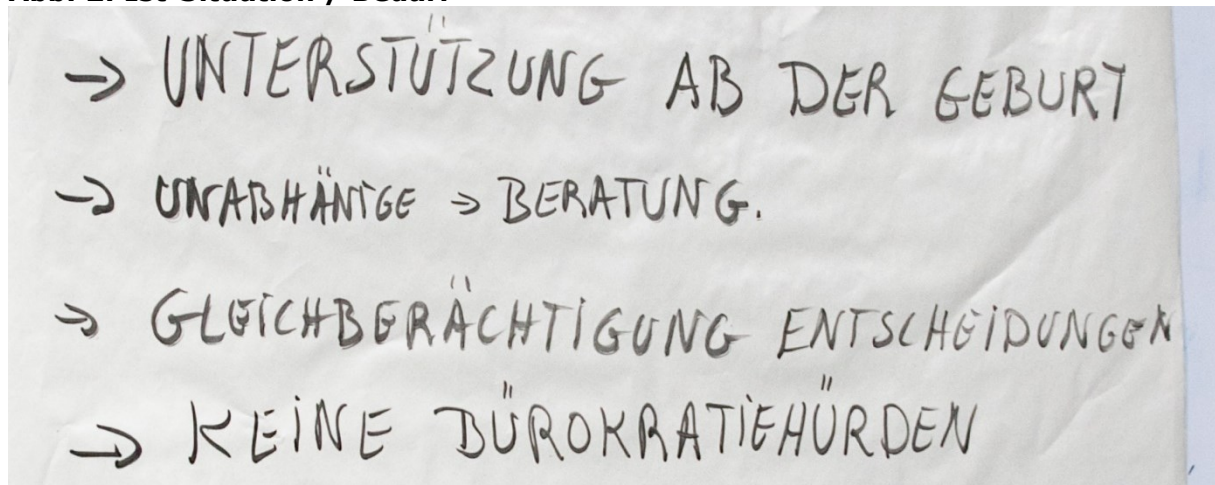 → UNTERSTÜTZUNG AB DER GEBURT
→ UNABHÄNIGE → BERATUNG.
→ GLEICHBERÄCHTIGUNG ENTSCHEIDUNGEN
→ KEINE BÜROKRATIEHÜRDEN